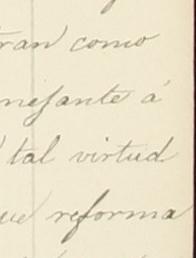 ran como
nesante á
tal virtud
ue reforma